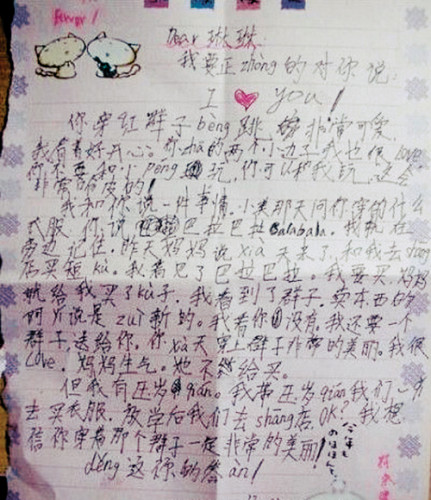 Forever!
Dear 琳琳:
我要正zhong的对你说:
I ♥ you!
你穿红群子bèng跳,非常可爱,
我看着好开心。你zhā的两个小边子我也很love
你不要和小péng玩,你可以和我玩,
非常
我和你说一件事情。小美那天问你穿的什么
衣服,你说巴拉巴拉balabala。我就在
旁边记住,昨天妈妈说xià天来了,和我去shāng
店买短kù。我看见了巴拉巴拉。我要买,妈妈
就给我买了kù子,我看到了群子,卖东西的
阿姨说是zuì新的。我看你没有,我还要一个
群子送给你,你xià天穿上群子非常的美丽。我很
love,妈妈生气。她不给买。
但我有压岁qián。我带压岁qián我们一块
去买衣服,放学后我们去shang店,OK?我想
信你穿着那个群子一定非常的美丽!
děng这你的答àn!
今年も
のほほんと